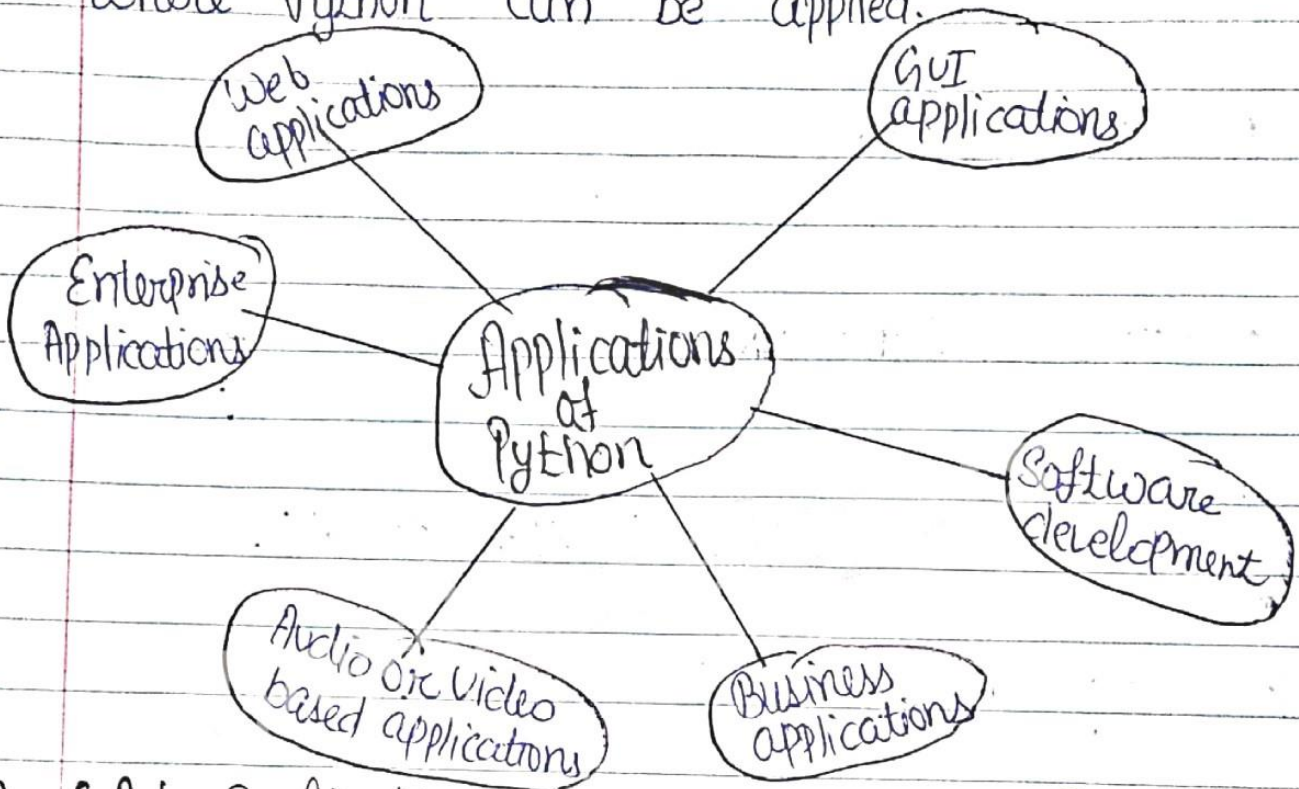 Python can be applied.
Web
applications
GUI
applications
Enterprise
Applications
Applications
of
Python
Software
development
Audio or Video
based applications
Business
applications